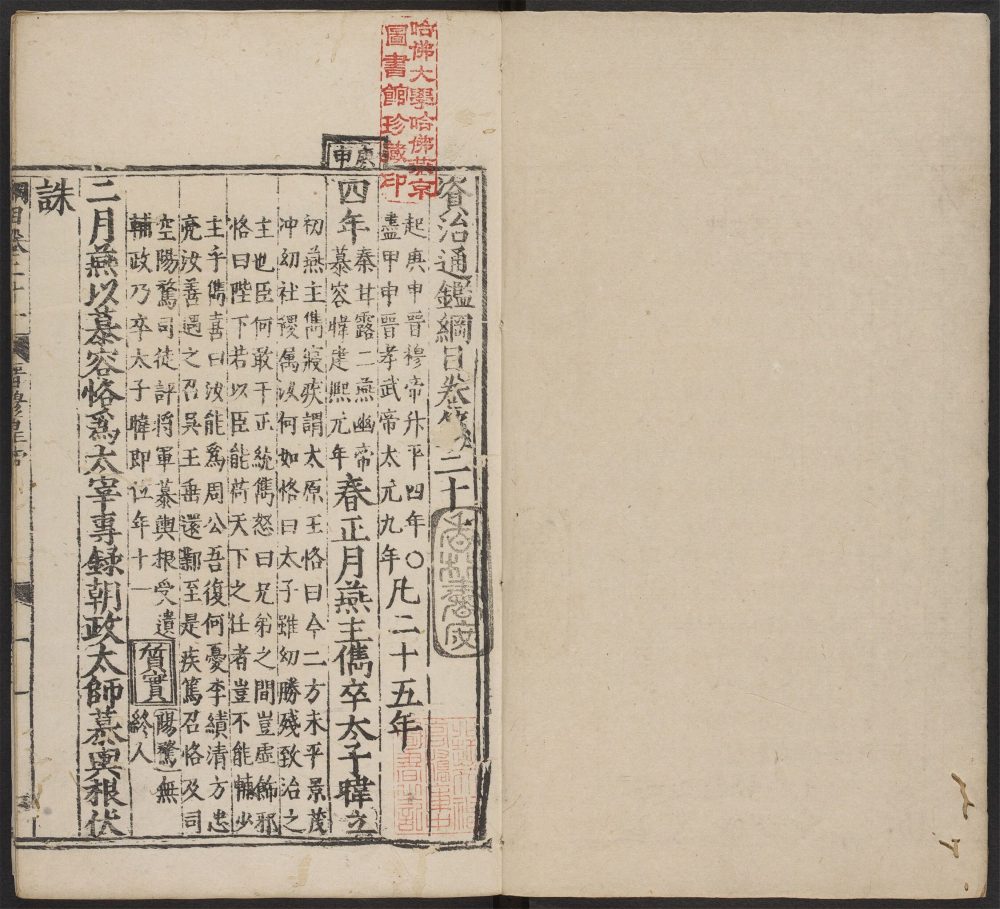 哈佛大學哈佛燕京
圖書館珍藏印
資治通鑑綱目卷第二十
起庚申晉穆帝升平四年〇凡二十五年
盡甲申晉孝武帝太元九年
庚申
四年
秦甘露二燕幽帝
慕容暐建熙元年
春正月燕主儁卒太子暐立
初燕主儁寢疾謂太原王恪曰今二方未平景茂
沖幼社稷屬汝何如恪曰太子雖幼勝殘致治之
主也臣何敢干正統儁怒曰兄弟之間豈虛飾邪
恪曰陛下若以臣能荷天下之任者豈不能輔少
主乎儁喜曰汝能爲周公吾復何憂李績清方忠
亮汝善遇之召吳王垂還鄴至是疾篤召恪及司
空陽騖司徒評將軍慕輿根受遺
輔政乃卒太子暐即位年十一
質實
陽騖無
終人
二月燕以慕容恪爲太宰專録朝政太師慕輿根伏
誅